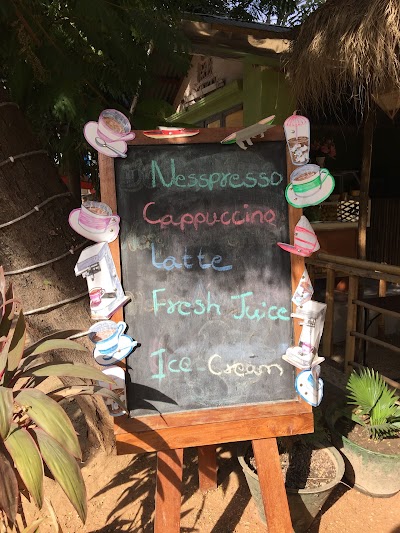 Nesspresso
Cappuccino
Latte
Fresh Juice
Ice Cream